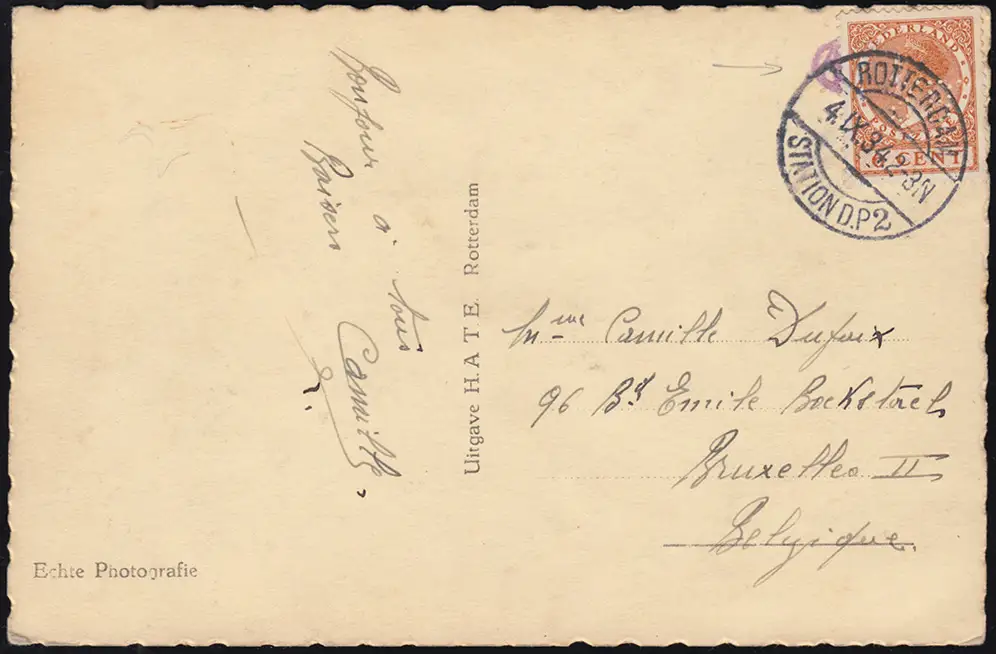 Bonjour à tous
Baisers
Camille
Uitgave H.A T E. Rotterdam
Echte Photografie
NEDERLAND
POSTZEGEL
CENT
ROTTERDAM
4.IX.34.2-3N
STATION D.P2
Mme Camille Dufoix
96 Bd Emile Bockstael
Bruxelles II
Belgique.